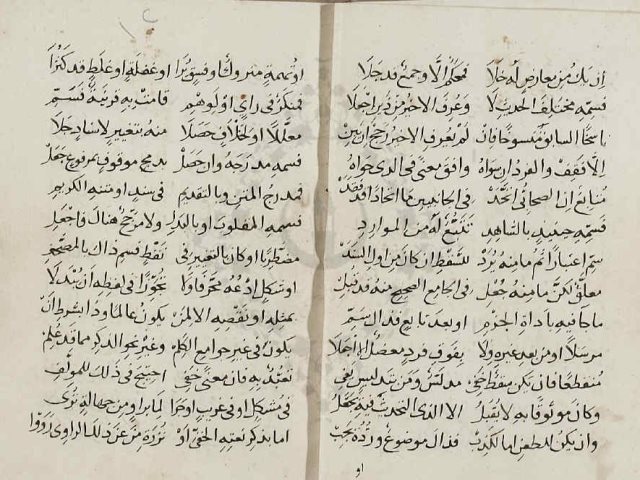 ان يك من معارض له خلا فمحكم الا وجمع قد جلا
فسمه مختلف الحديث لا وعرف الاخر من ذين اجعلا
ناسخا السابق منسوخا فان لم يعرف الاخر رجح ان يبن
الا فقف والفرد ان سواه وافق معنى في الذي حواه
متابع ان الصحابي اتحد في الجانبين ما اتحادا قد فقد
فسمه حينيذ بالشاهد تتبع له من الموارد
سم اعتبارا ثم ما منه يرد للسقط ان كان من اول السند
معلق لكن ما منه جعل في الجامع الصحيح منه قد قبل
ما جا فيه باداة الجزم او بعد تابع فذا سم
مرسلا او من بعد غيره ولا يفوق فرد معضلا اجعلا
منقطعا فان يكن بسقط خفي مدلس ومن بتدليس يفي
وكان موثوقا به لا يقبل الا الذي التحديث فيه يحصل
وان يكن للطعن اما لكذب فذا موضوع ورده يجب
او
او تهمة متروك او فسق يرا او غفلة او غلط قد كثرا
فمنكر في راي او لوهم قامت به قرينة فسم
معللا او لخلاف حصلا منه بتغيير لاسناد جلا
فسمه مدرجه وان حصل بدمج موقوف بمرفوع جعل
فمدرج المتن وبالتقديم في سند او متنه الكريم
فسمه المقلوب او بالبدل ولا مرجح هناك فاجعل
مضطربا او كان بالتغيير في نقط فسم ذاك بالمصحف
او شكل ادعه محرفا ولا تجوزا في لفظه ان يبدلا
بمثله او نقصه الا لمن يكون عالما وذا بشرط ان
يكون في غير جوامع الكلم وغير نحو الذكر مما قد علم
تعبد به فان معنى خفي احتيج في ذلك للمولف
في مشكل او في غريب او جرا لما يرا ومن جهالة ترى
اما بذكر نعته الخفي او ندرة من عن ذلك الراوي رووا